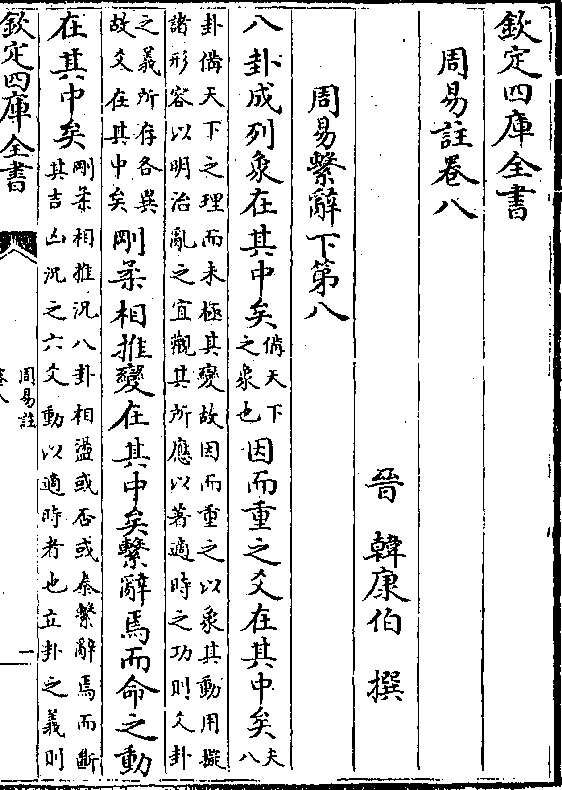 欽定四庫全書
周易註卷八
晉 韓康伯 撰
周易繫辭下第八
八卦成列象在其中矣備天下之象也因而重之爻在其中矣夫八
卦備天下之理而未極其變故因而重之以象其動用擬
諸形容以明治亂之宜觀其所應以著適時之功則爻卦
之義所存各異故爻在其中矣剛柔相推變在其中矣繫辭焉而命之動
在其中矣剛柔相推況八卦相盪或否或泰繫辭焉而斷其吉凶況之六爻動以適時者也立卦之義則
欽定四庫全書
周易註
卷八
一